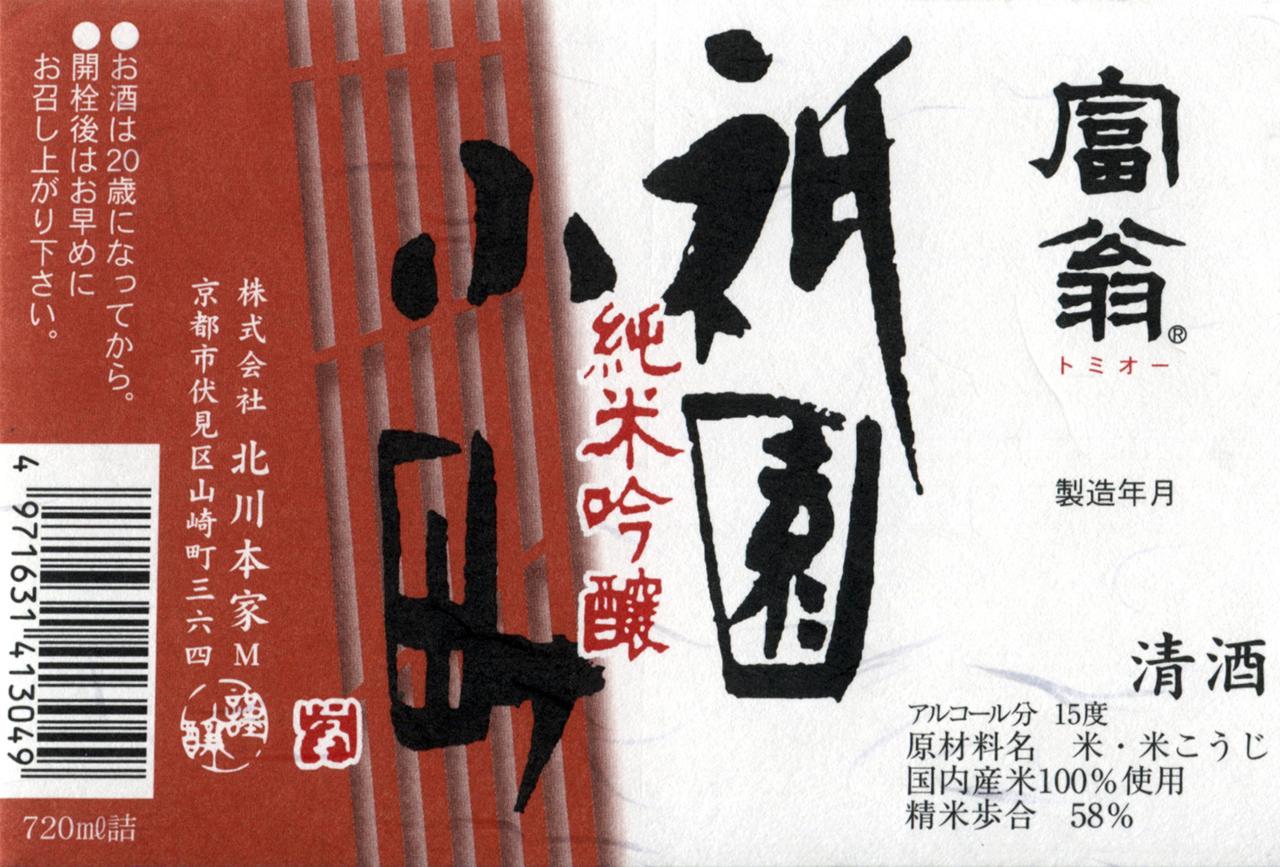 富翁®
トミオー
製造年月
清酒
アルコール分 15度
原材料名 米・米こうじ
国内産米100%使用
精米歩合 58%
祇園
小町
純米吟醸
株式会社 北川本家M
京都市伏見区山崎町三六四
謹醸
●お酒は20歳になってから。
●開栓後はお早めに
お召し上がり下さい。
4 971631 413049
720mℓ詰